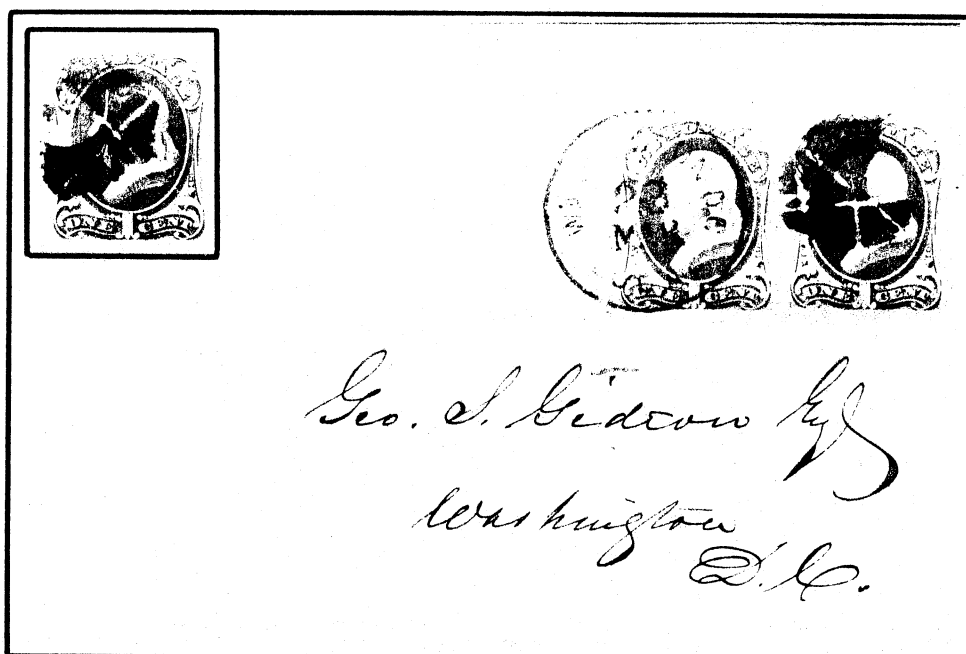 ONE CENT
M
D.C.
ONE CENT
ONE CENT
Geo. S. Gideon Esq
Washington
D.C.